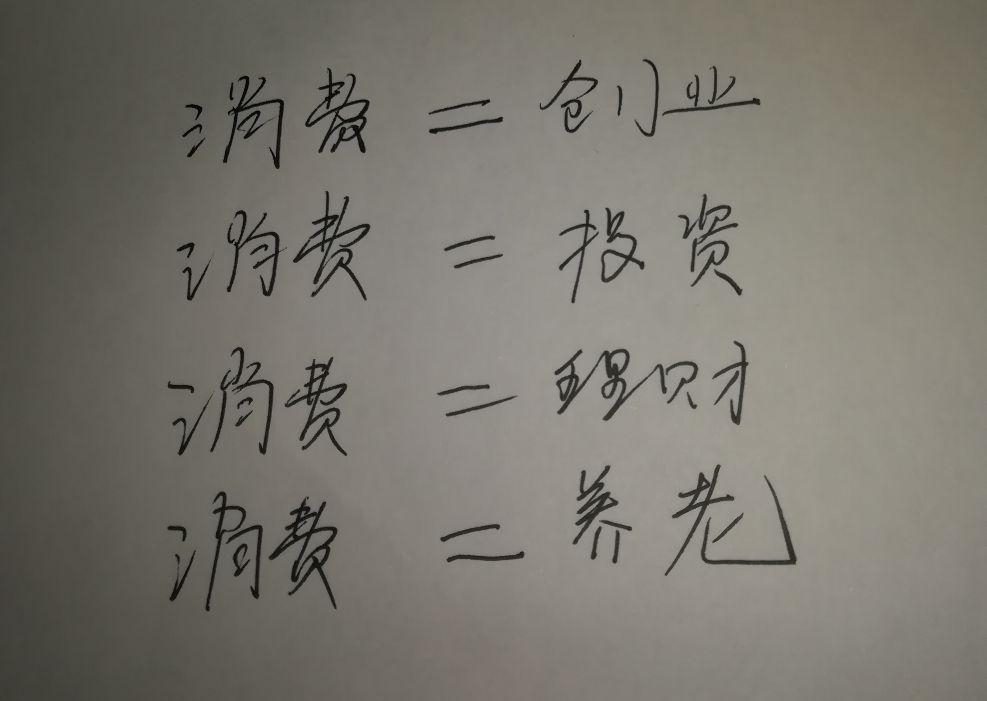 消费 = 创业
消费 = 投资
消费 = 理财
消费 = 养老